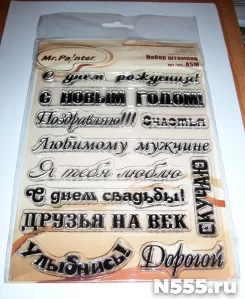 Mr.Painter
Набор штампов
ASM
С днем рождения!
С НОВЫМ ГОДОМ!
Поздравляю!!!
Счастья
Любимому мужчине
Я тебя люблю
С днем свадьбы!
ДРУЗЬЯ НА ВЕК
Улыбнись!
Дорогой
WWW.555555.BY